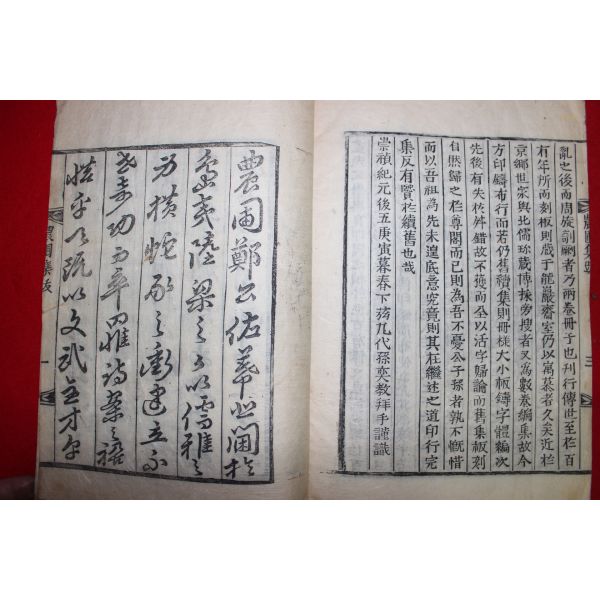 亂之後而周旋剞劂者乃兩卷冊子也刊行傳世至於百
有年所而刻板則藏于龍巖齋室仍以寓慕者久矣近於
京鄕世家與北儒珍藏博採旁搜者又爲數卷編集故今
方印鑄布行而若仍舊續集則冊樣大小板鑄字體編次
先後有失於舛錯故不獲而全以活字歸論而舊集板刻
自然歸之於尊閣而已則爲吾不憂公子孫者孰不慨惜
而以吾祖爲先未遑底意究竟則其在繼述之道印行完
集反有賢於續舊也哉
崇禎紀元後五庚寅暮春下澣九代孫奕教拜手謹識
農圃集
農圃鄭公佐幕北關於
島夷陸梁之日以儒雅之
力橫
建立
奇功
詩案之禍
以文武全才
農圃集跋
一